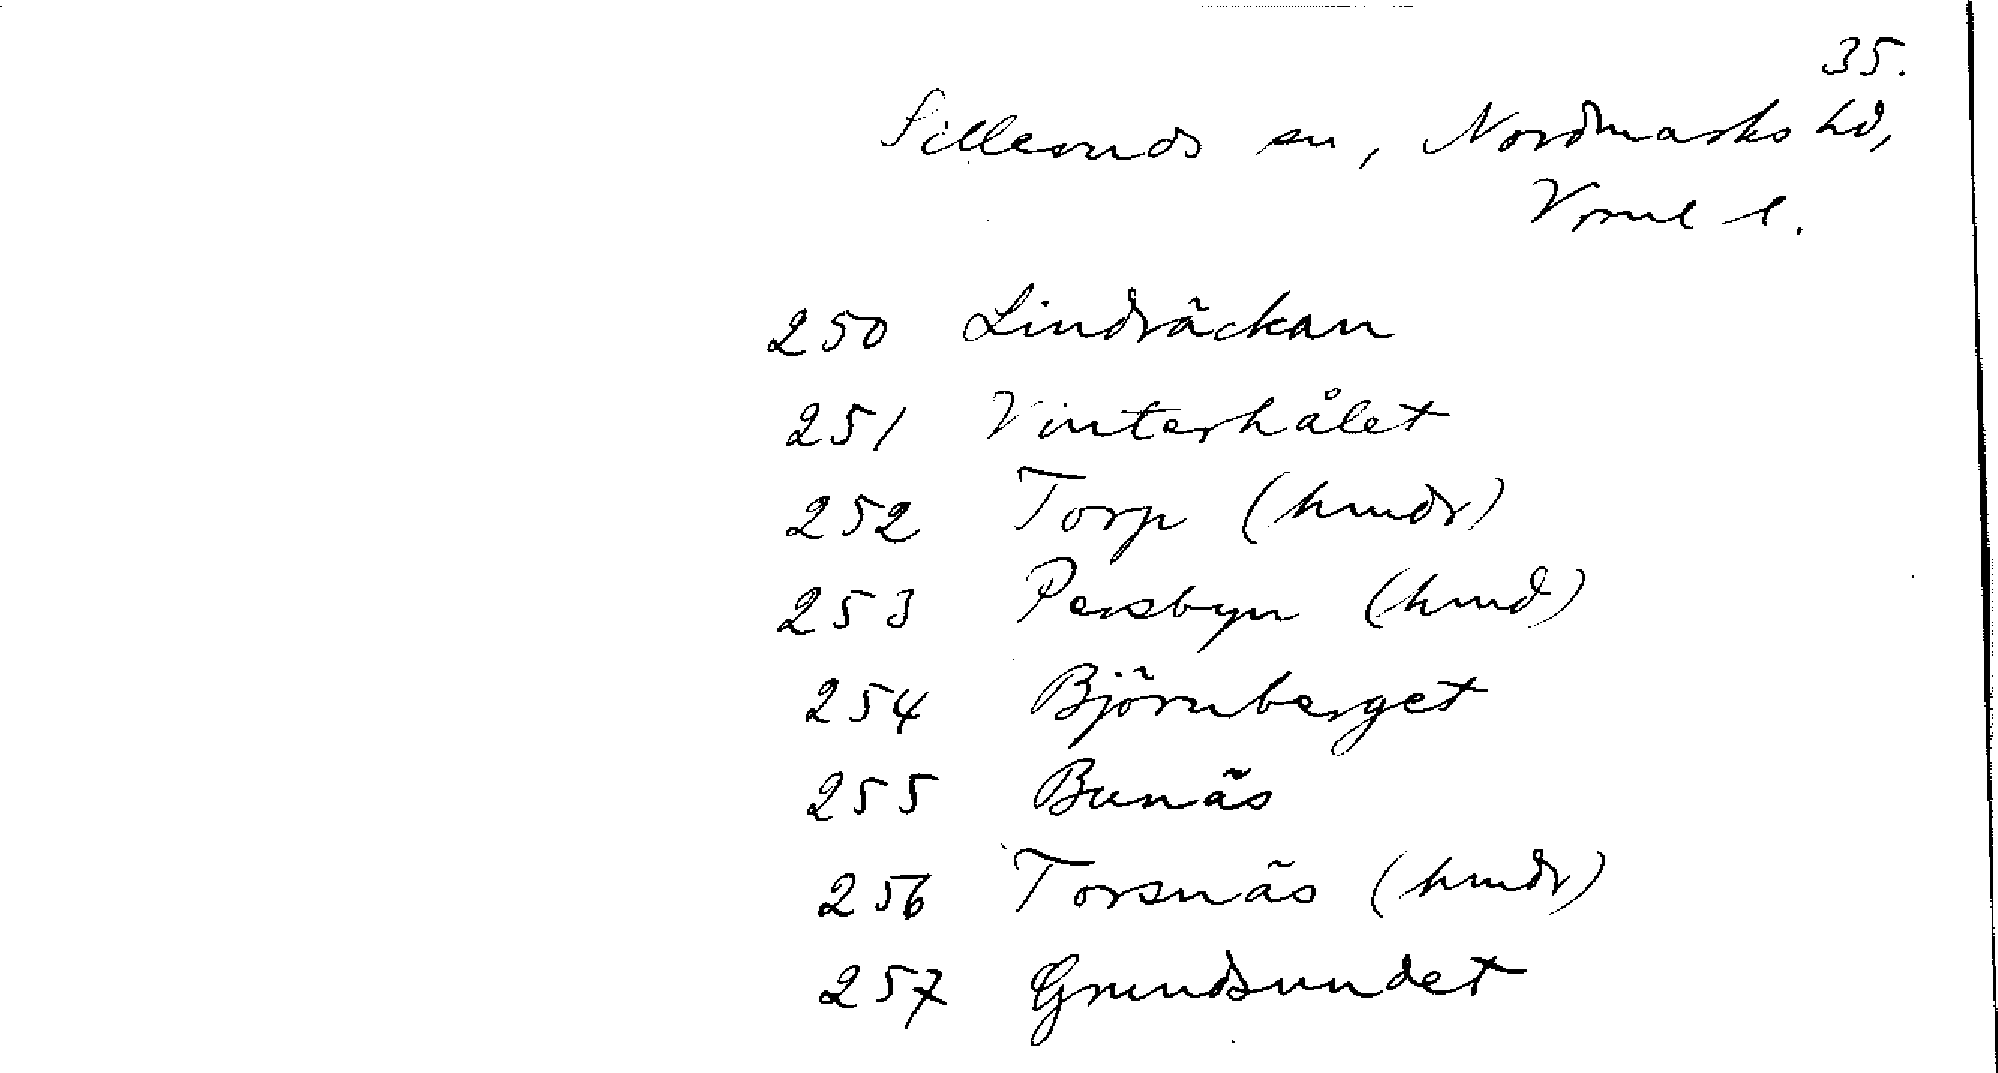 35.
Silleruds sn, Nordmarks hd,
Vrml l.
250 Lindräckan
251 Vinterhålet
252 Torp (hmdr)
253 Persbyn (hmd)
254 Björnberget
255 Bunäs
256 Torsnäs (hmdr)
257 Grundsundet